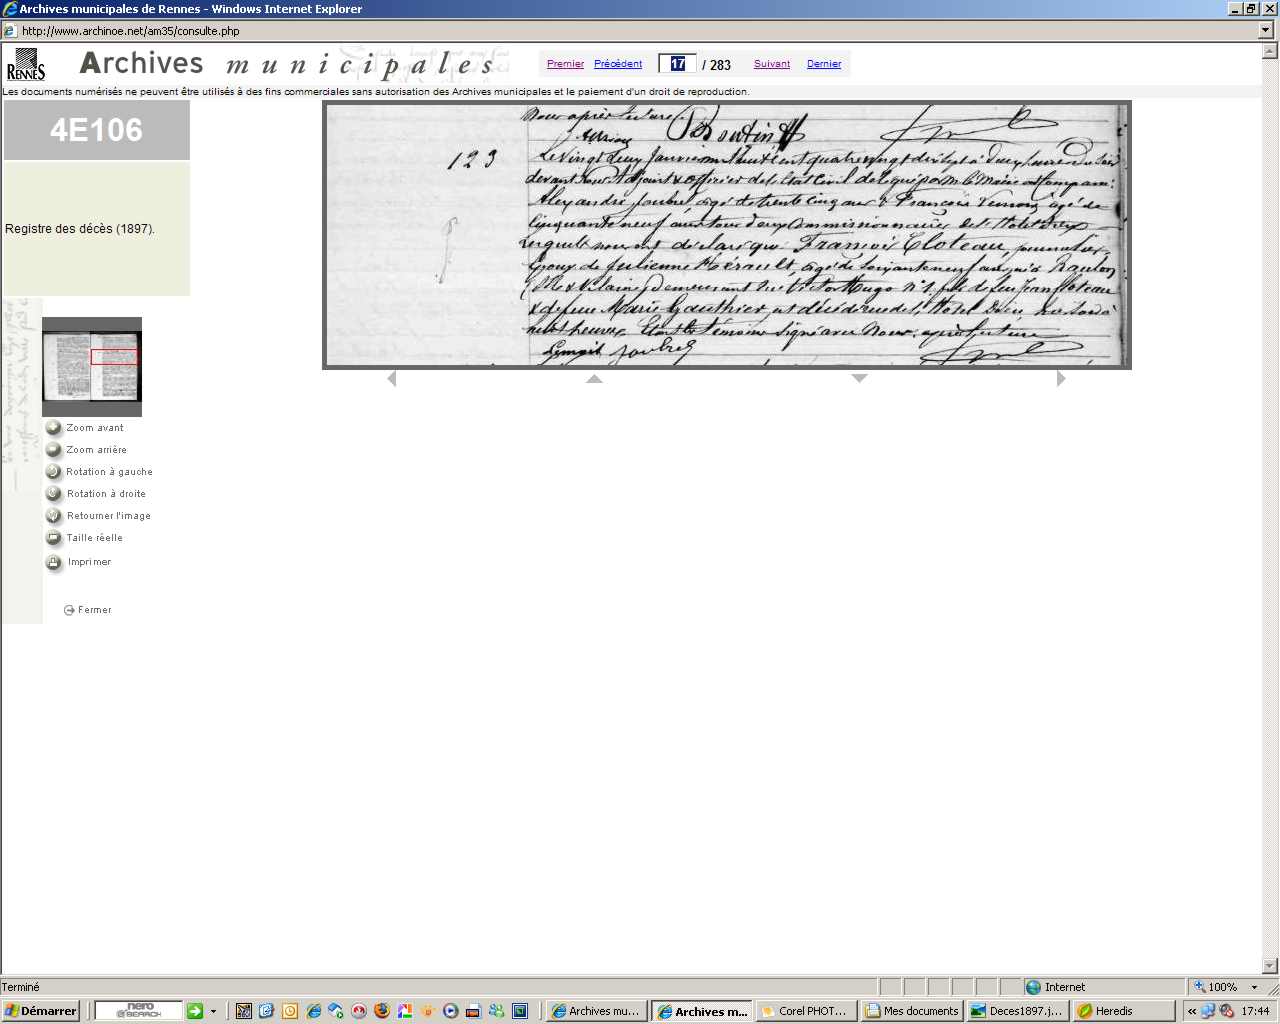 Archives municipales de Rennes - Windows Internet Explorer
http://www.archinoe.net/am35/consulte.php
RENNES
Archives municipales
Premier Précédent 17 / 283 Suivant Dernier
Les documents numérisés ne peuvent être utilisés à des fins commerciales sans autorisation des Archives municipales et le paiement d'un droit de reproduction.
4E106
Registre des décès (1897).
Nous après lecture
123
Le vingt deux Janvier mil huit cent quatre vingt dix sept à deux heures du soir
devant Nous Adjoint & officier de l'Etat Civil délégué par M. le Maire ont comparu:
Alexandre Joubrel, âgé de trente cinq ans & François âgé de
cinquante neuf ans tous deux Commissionnaires de l'Hotel Dieu
lesquels nous ont déclaré que François Cloteau, journalier
époux de Julienne Hérault, âgé de soixante neuf ans, né à
(Ille & Vilaine) demeurant rue Victor Hugo N° 1, fils de feu Jean Cloteau
& de feue Marie Gauthier, est décédé rue de l'Hotel Dieu, hier soir à
neuf heures. Les témoins signé avec Nous, après lecture
Joubrel
Zoom avant
Zoom arrière
Rotation à gauche
Rotation à droite
Retourner l'image
Taille réelle
Imprimer
Fermer
Terminé
Internet
100%
Démarrer
nero SEARCH
Archives mu...
Archives m...
Corel PHOT...
Mes documents
Deces1897.j...
Heredis
17:44